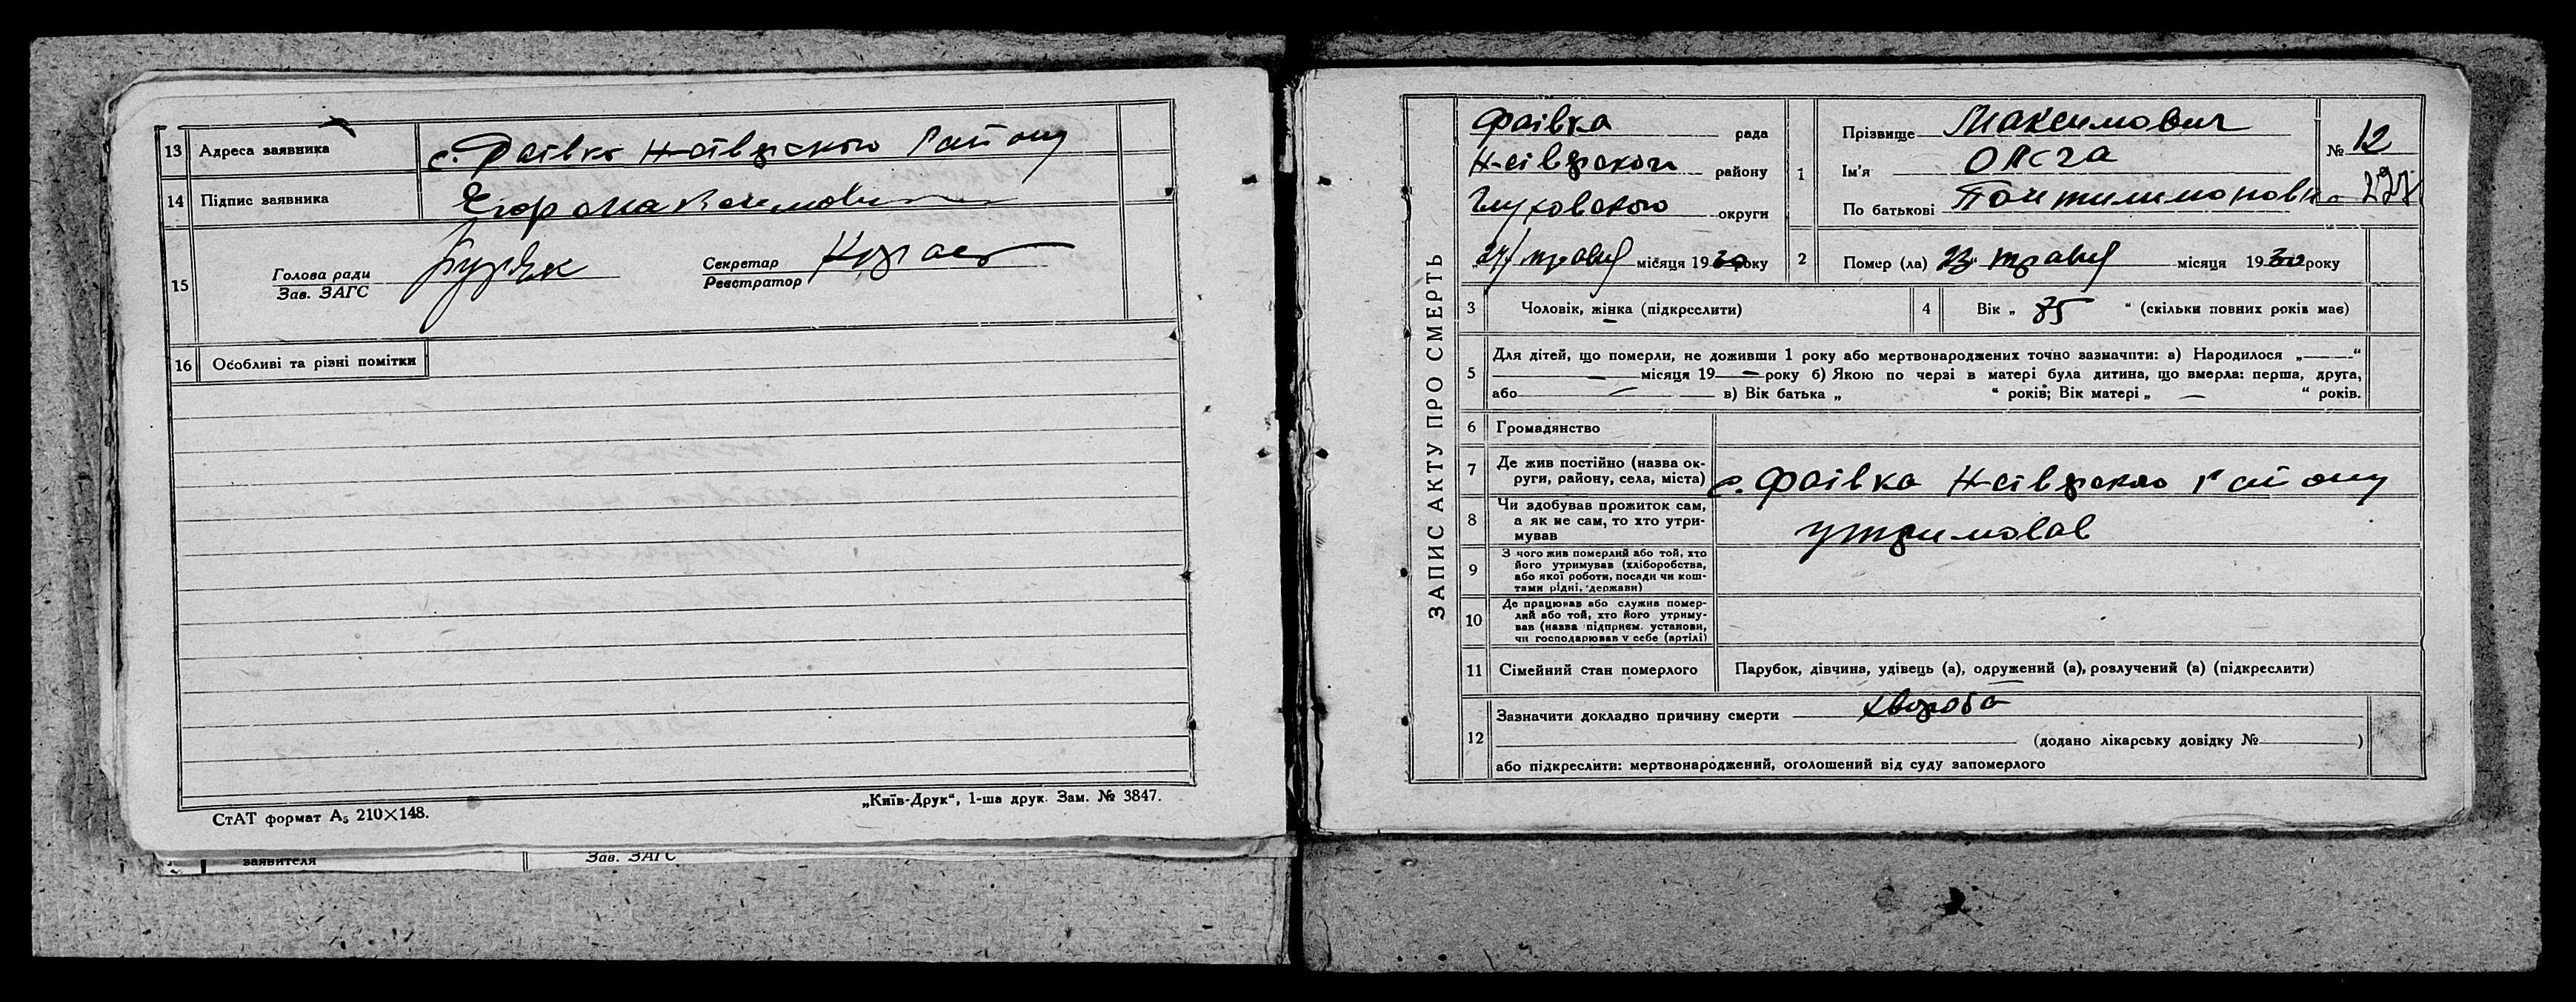 13 Адреса заявника с. Фаівка Н-Сіверского Району
14 Підпис заявника Єгор Максимович
15 Голова ради Буряк Секретар
Зав. ЗАГС Реєстратор
16 Особливі та різні помітки
СтАТ формат А5 210×148.
„Київ-Друк“, 1-ша друк. Зам. № 3847.
заявителя Зав. ЗАГС
ЗАПИС АКТУ ПРО СМЕРТЬ
Фаівка рада
Н-Сіверского району
Глуховского округи
„27“ травня місяця 1930 року
1 Прізвище Максимович
Ім'я Ольга
По батькові Пантилимоновна
№ 12
2 Помер (ла) „23“ травня місяця 1930 року
3 Чоловік, жінка (підкреслити)
4 Вік „ 85 “ (скільки повних років має)
5 Для дітей, що померли, не доживши 1 року або мертвонароджених точно зазначити: а) Народилося „—“
— місяця 19 — року б) Якою по черзі в матері була дитина, що вмерла: перша, друга,
або — в) Вік батька „ “ років; Вік матері „ — “ років.
6 Громадянство
7 Де жив постійно (назва ок-
руги, району, села, міста) с. Фаівка Н-Сіверского Району
8 Чи здобував прожиток сам,
а як не сам, то хто утри-
мував утримовав
9 З чого жив померлий або той, хто
його утримував (хліборобства,
або якої роботи, посади чи кош-
тами рідні, держави)
10 Де працював або служив помер-
лий або той, хто його утриму-
вав (назва підприєм. установи,
чи господарював у себе (артілі)
11 Сімейний стан померлого Парубок, дівчина, удівець (а), одружений (а), розлучений (а) (підкреслити)
12 Зазначити докладно причину смерти хвороба
(додано лікарську довідку № )
або підкреслити: мертвонароджений, оголошений від суду запомерлого